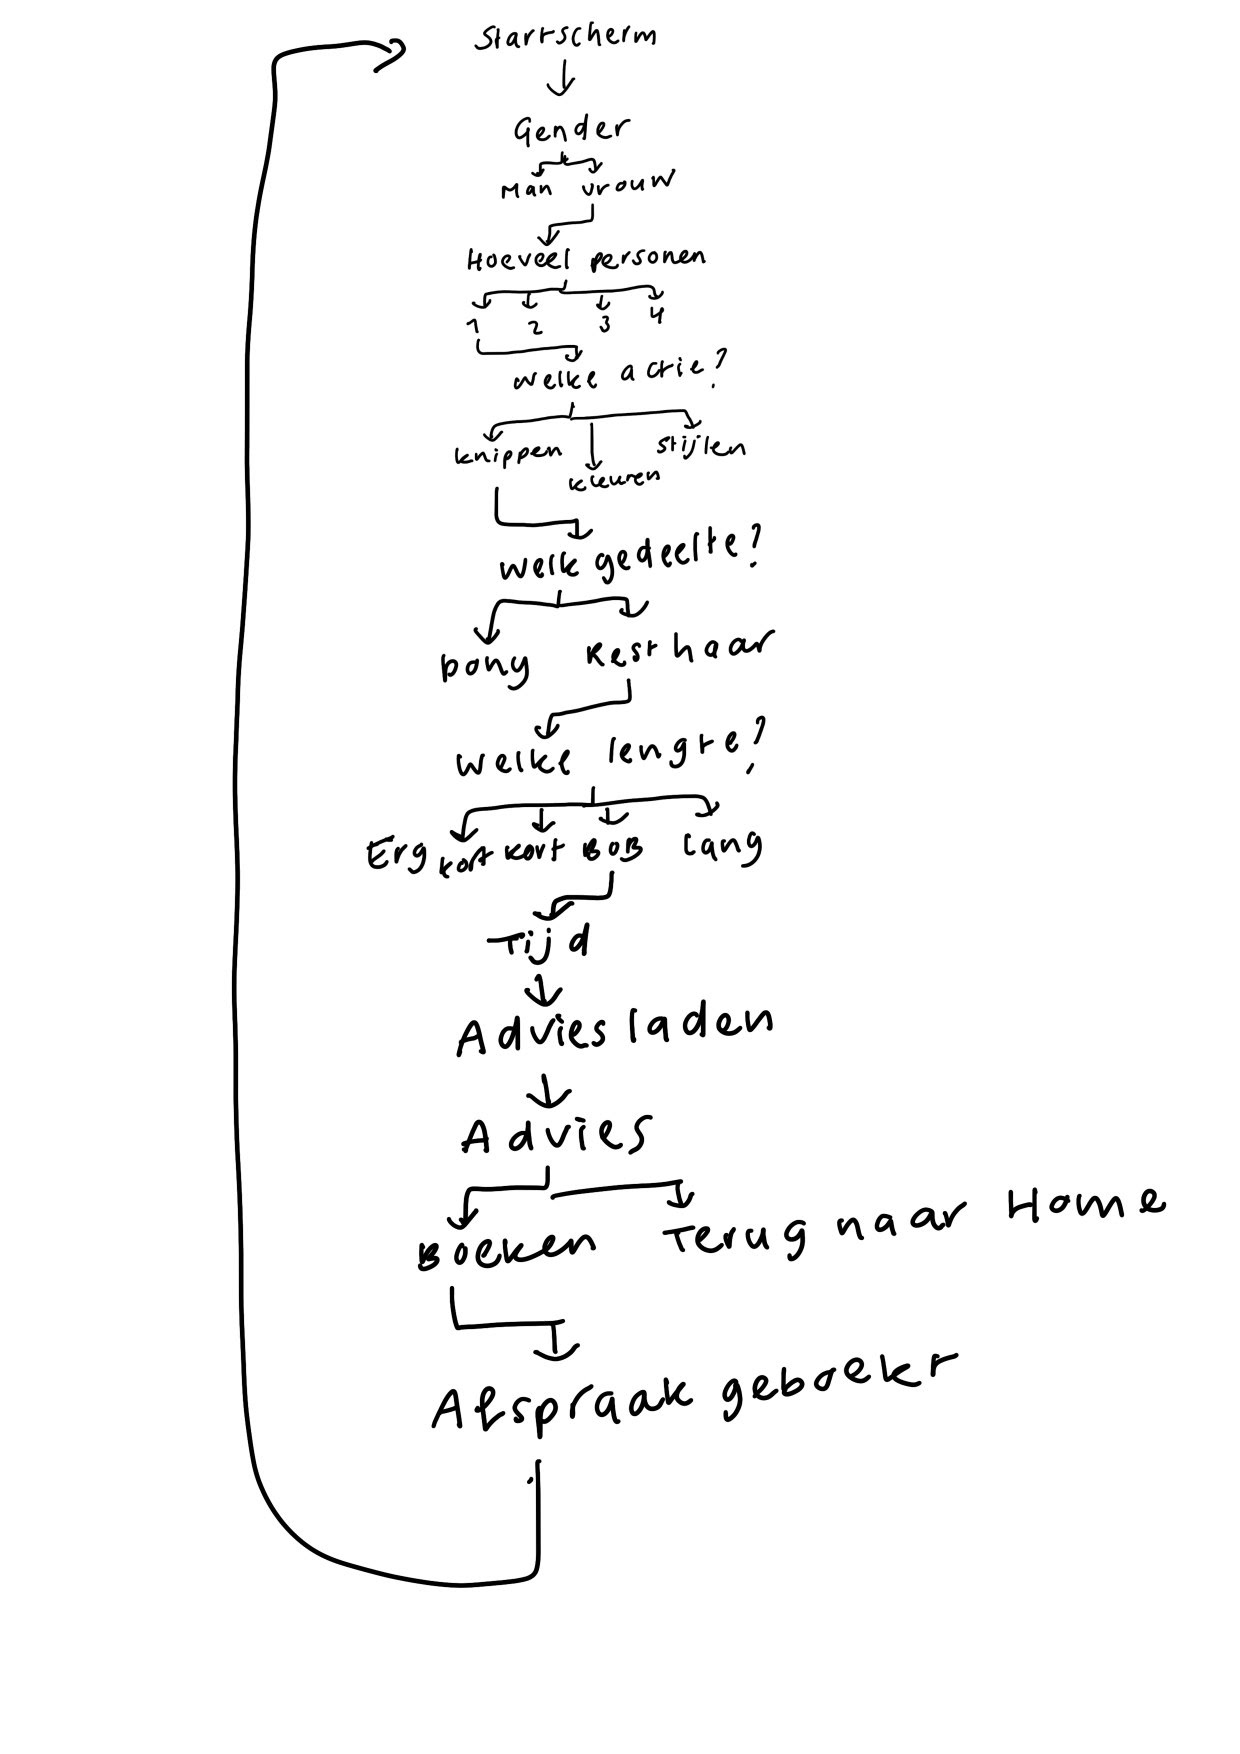 Startscherm
Gender
Man vrouw
Hoeveel personen
1 2 3 4
Welke actie?
knippen kleuren stijlen
Welk gedeelte?
pony Rest haar
Welke lengte?
Erg kort kort BOB lang
Tijd
Advies laden
Advies
Boeken Terug naar Home
Afspraak geboekt